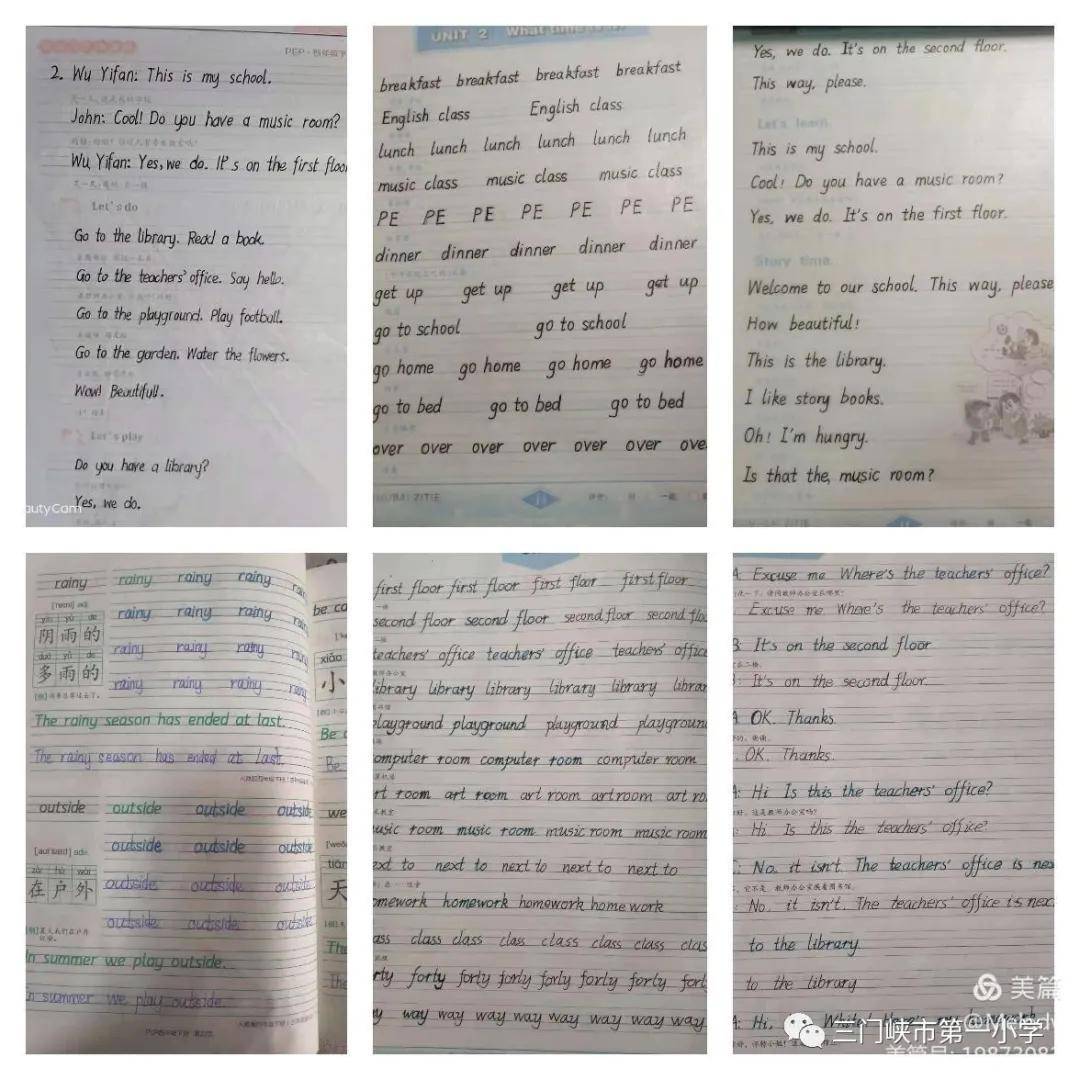 PEP·四年级下
2. Wu Yifan: This is my school.
John: Cool! Do you have a music room?
Wu Yifan: Yes, we do. It's on the first floo
Let's do
Go to the library. Read a book.
Go to the teachers' office. Say hello.
Go to the playground. Play football.
Go to the garden. Water the flowers.
Wow! Beautiful!.
Let's play
Do you have a library?
Yes, we do.
autyCam
UNIT 2 What time is it?
breakfast breakfast breakfast breakfast
English class English class
lunch lunch lunch lunch lunch
music class music class music class
PE PE PE PE PE PE PE
dinner dinner dinner dinner dinner
get up get up get up get up
go to school go to school
go home go home go home go home
go to bed go to bed go to bed
over over over over over over ove
ZITIE
11
Yes, we do. It's on the second floor.
This way, please.
Let's learn
This is my school.
Cool! Do you have a music room?
Yes, we do. It's on the first floor.
Story time
Welcome to our school. This way, please
How beautiful!
This is the library.
I like story books.
Oh! I'm hungry.
Is that the, music room?
ZITIE
rainy rainy rainy rainy rain
yīn yǔ de
阴雨的
duō yǔ de
多雨的
rainy rainy rainy rainy
rainy rainy rainy rainy
rainy rainy rainy rainy
The rainy season has ended at last.
The rainy season has ended at last.
outside outside outside outside
outside outside outside
zài hù wài
在户外
outside outside outside
outside outside outside
In summer we play outside.
In summer we play outside.
be ca
xiǎo
小
Be
Be
we
tiān
天
The
The
first floor first floor first floor first floor
second floor second floor second floor second floo
teachers' office teachers' office teachers' office
library library library library library librar
playground playground playground playgroun
omputer room computer room computer room
rt room art room art room art room art ro
usic room music room music room music room
ext to next to next to next to next to
omework homework homework homework
ass class class class class class class clas
rty forty forty forty forty forty fort
y way way way way way way way
A: Excuse me. Where's the teachers' office?
Excuse me. Where's the teachers' office?
B: It's on the second floor
: It's on the second floor.
A OK. Thanks.
. OK. Thanks.
A: Hi. Is this the teachers' office?
: Hi. Is this the teachers' office?
C: No, it isn't. The teachers' office is nex
: No, it isn't. The teachers' office is nex
to the library
to the library
A: Hi,
美篇
三门峡市第一小学